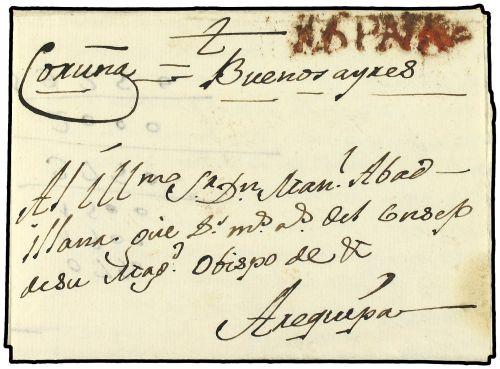 ESPAÑA
Coruña = Buenos ayres
Al Illmo Sr. Dn. Man.l Abad
illana que Ds. ms. as. del Consejo
de su Magd. Obispo de &
Arequipa